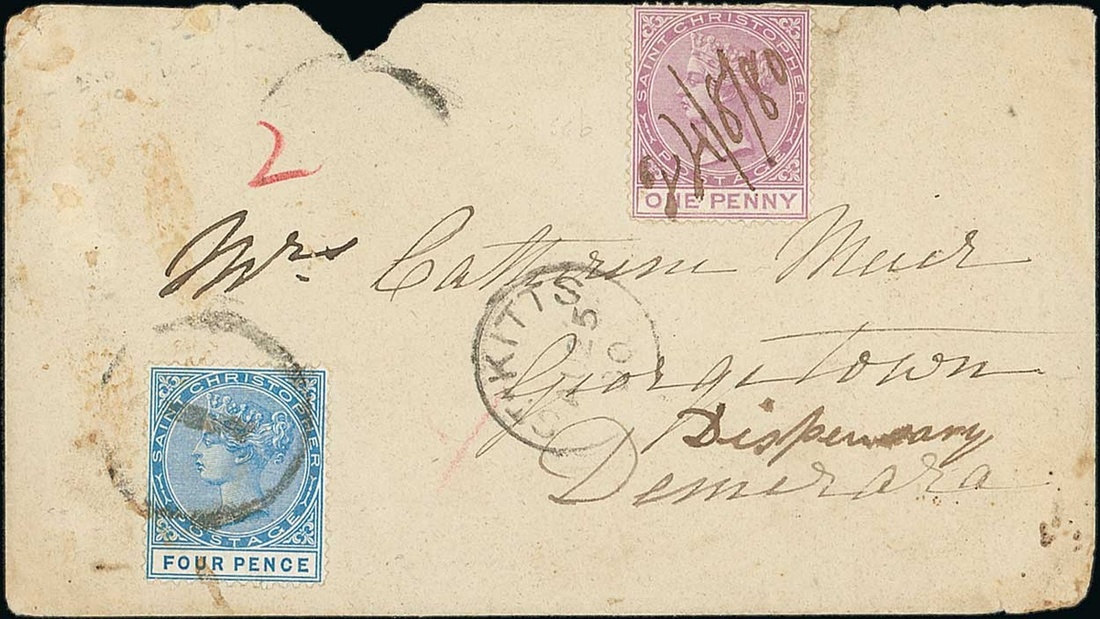 SAINT CHRISTOPHER
POSTAGE
ONE PENNY
24/8/80
2
Mrs Catherine Muir
GeorgeTown
Dispensary
Demerara
ST KITTS
25
80
SAINT CHRISTOPHER
POSTAGE
FOUR PENCE